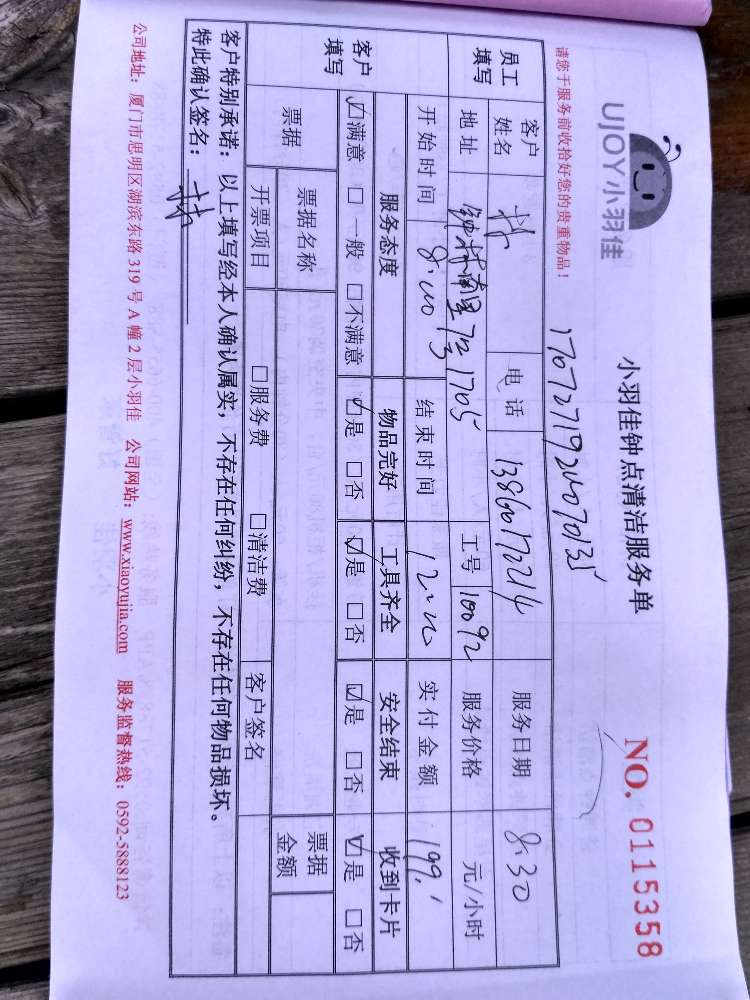 UJOY小羽佳
小羽佳钟点清洁服务单
NO. 0115358
请您于服务前收拾好您的贵重物品！
员工填写
客户姓名 林 电话 13860170214 服务日期 8.30
地址 1705 工号 10092 服务价格 元/小时
开始时间 8:00 结束时间 12:00 实付金额 199.
客户填写
服务态度 物品完好 工具齐全 安全结束 收到卡片
☑满意 □一般 □不满意 ☑是 □否 ☑是 □否 ☑是 □否 ☑是 □否
票据 票据名称 票据金额
开票项目 □服务费 □清洁费 客户签名
客户特别承诺：以上填写经本人确认属实；不存在任何纠纷，不存在任何物品损坏。
特此确认签名：林
公司地址：厦门市思明区湖滨东路 319 号 A 幢 2 层小羽佳 公司网站：www.xiaoyujia.com 服务监督热线：0592-5888123